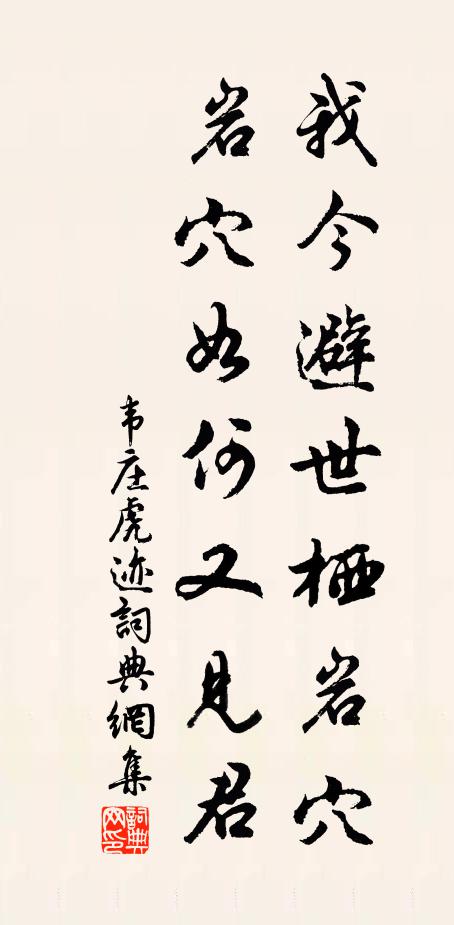 我今避世栖岩穴
岩穴如何又见君
韦庄虎迹詞典網集
詞典
网印